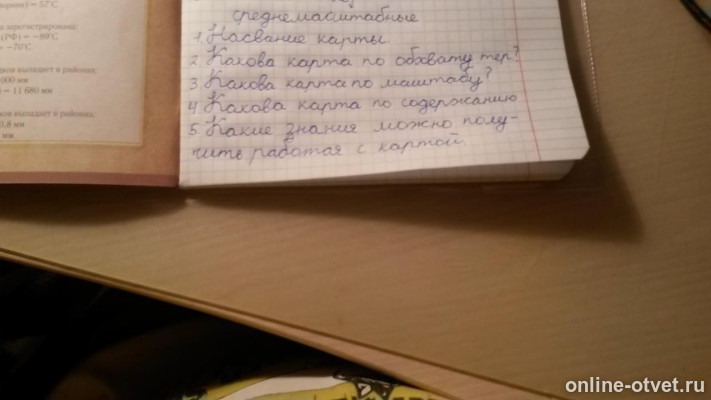 5) = 57°С
зарегистрирована:
(РФ) = −89°С
= −70°С
выпадает в районах:
000 мм
) = 11 680 мм
выпадает в районах:
0,8 мм
мм
среднемасштабные
1. Название карты
2. Какова карта по обхвату тер?
3. Какова карта по маштабу?
4. Какова карта по содержанию
5. Какие знания можно полу-
чить работая с картой.
online-otvet.ru